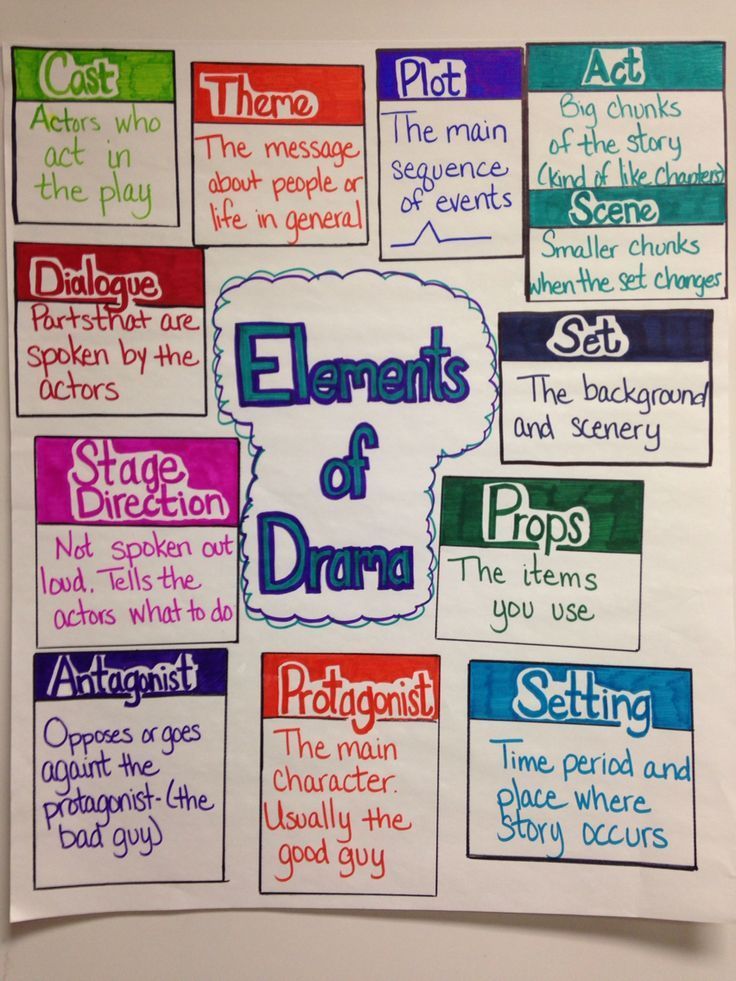 Cast
Actors who
act in
the play
Theme
The message
about people or
life in general
Plot
The main
sequence
of events
Act
Big chunks
of the story
(kind of like chapters)
Scene
Smaller chunks
when the set changes
Dialogue
Parts that are
spoken by the
actors
Elements
of
Drama
Set
The background
and scenery
Stage
Direction
Not spoken out
loud. Tells the
actors what to do
Props
The items
you use
Antagonist
Opposes or goes
againt the
protagonist-(the
bad guy)
Protagonist
The main
character.
Usually the
good guy
Setting
Time period and
place where
Story occurs